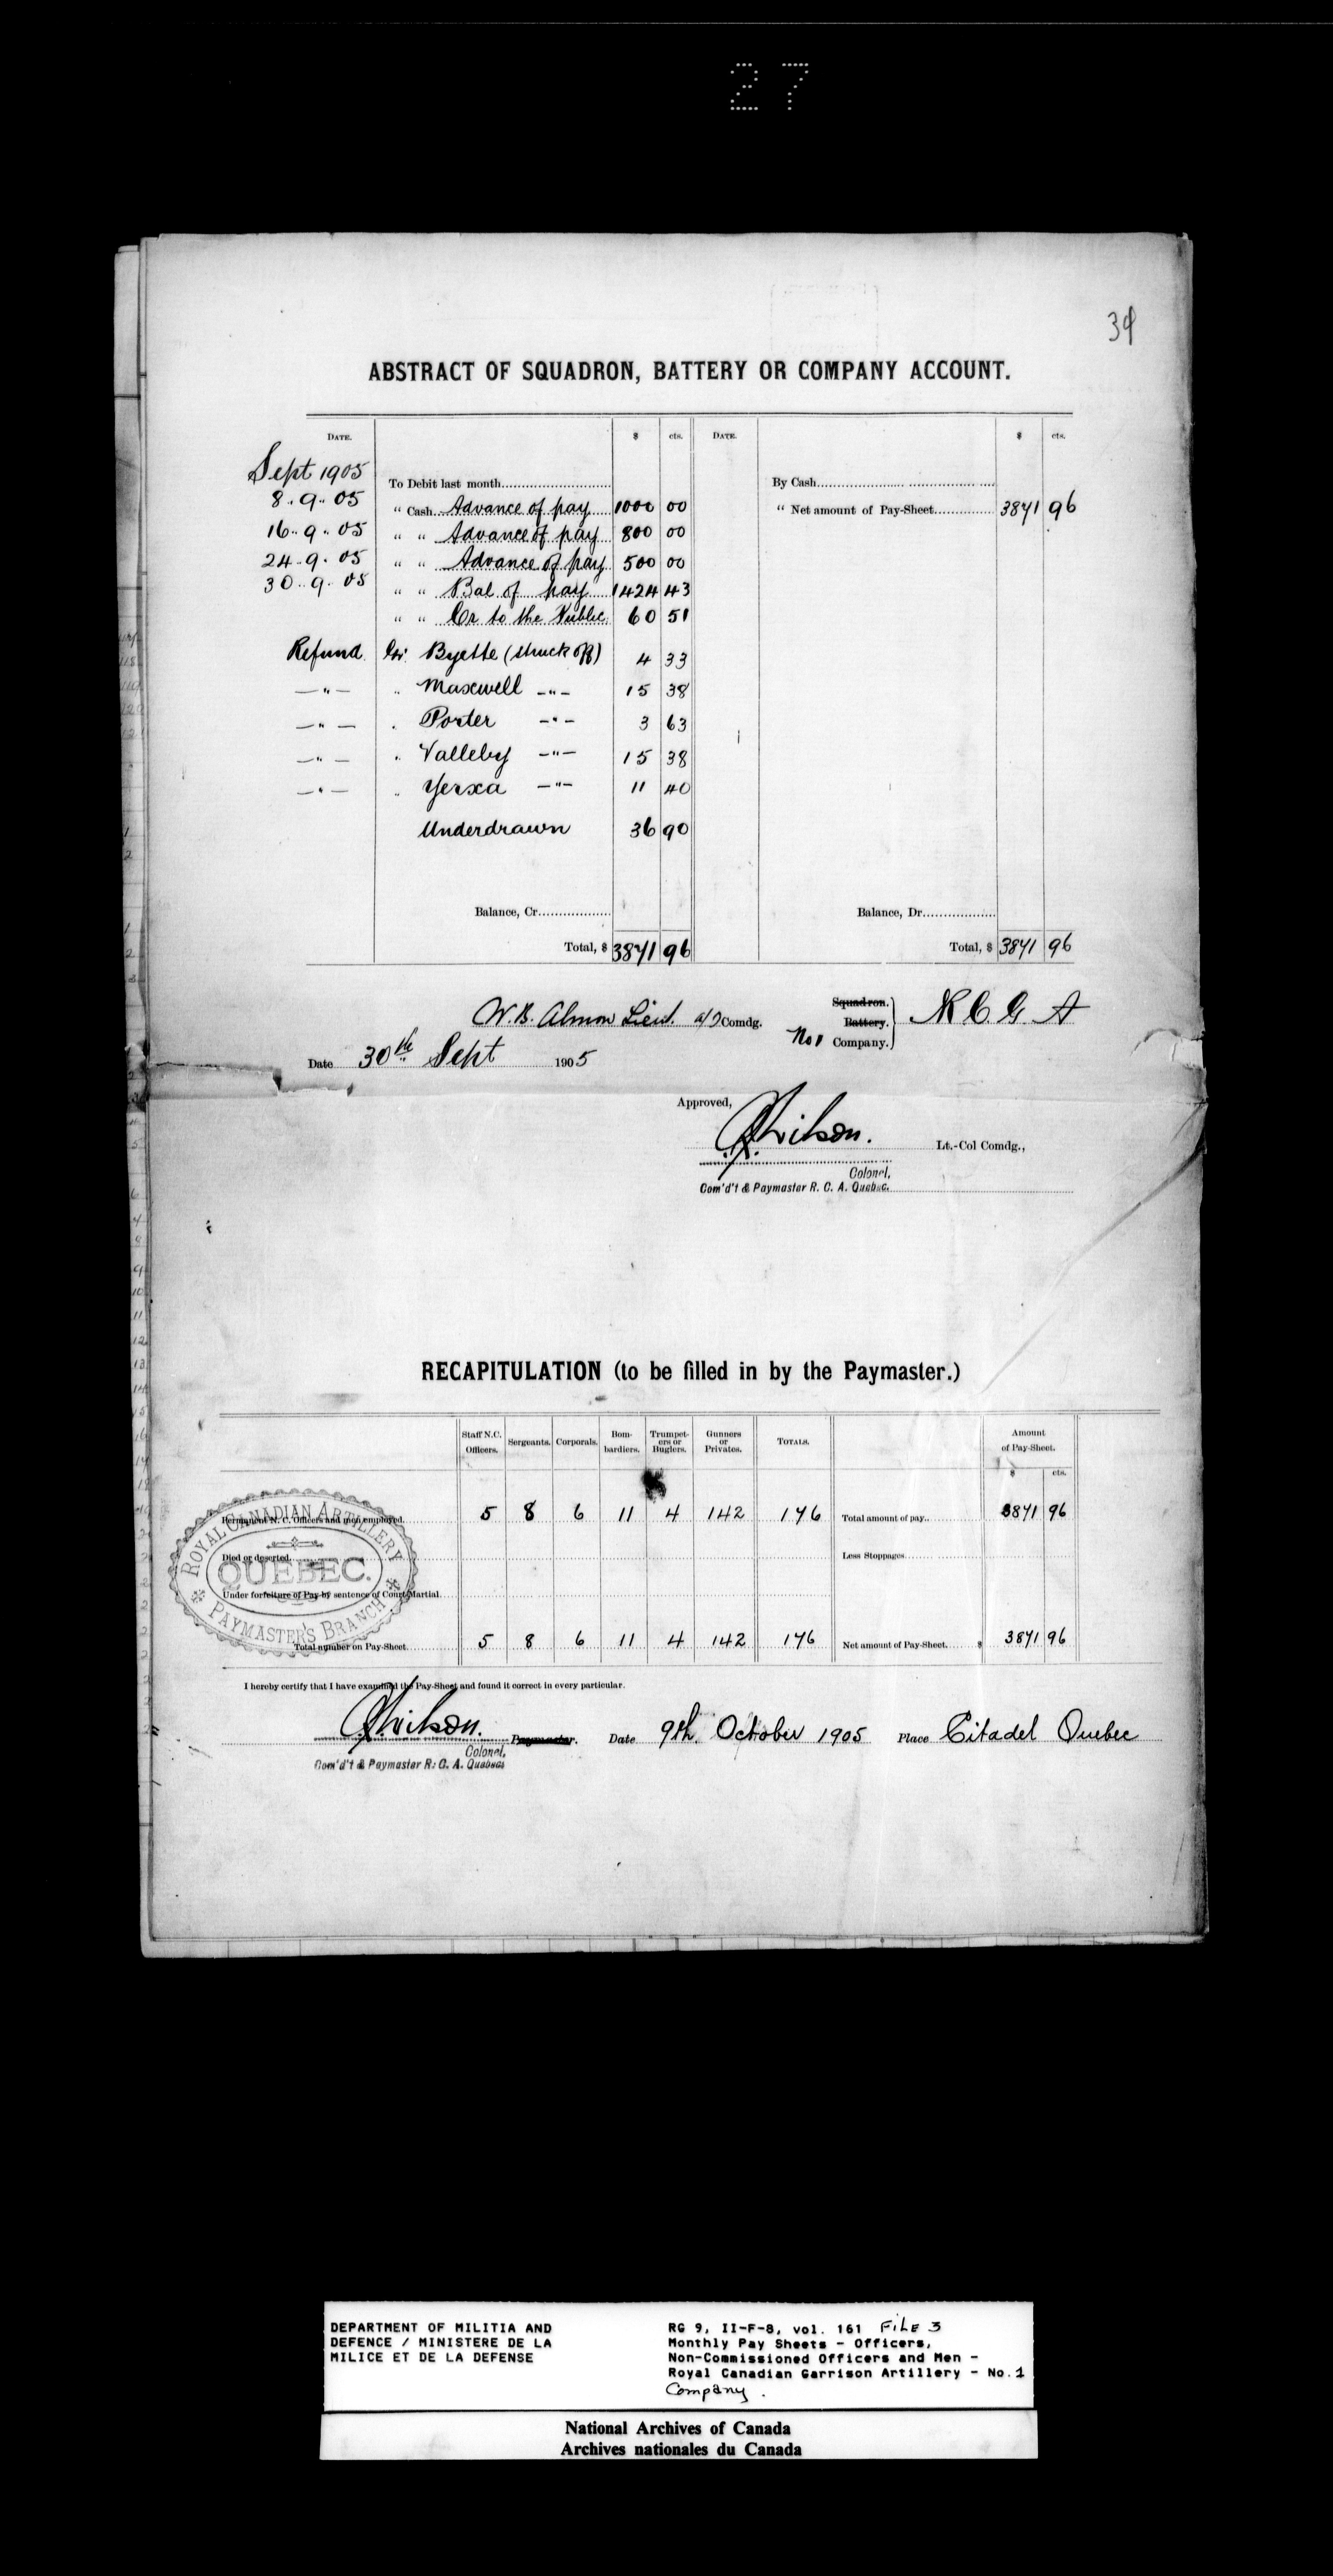 27
ABSTRACT OF SQUADRON, BATTERY OR COMPANY ACCOUNT.
DATE. $ cts. DATE. $ cts.
Sept 1905
To Debit last month By Cash
8..9..05 " Cash Advance of pay 1000 00 " Net amount of Pay-Sheet 3871 96
16..9..05 " " Advance of pay 800 00
24..9..05 " " Advance of pay 500 00
30..9..05 " " Bal of pay 1424 43
" " Cr to the Public 60 51
Refund Gr. Byette (struck off) 4 33
—"— " Maxwell —"— 15 38
—"— " Porter —"— 3 63
—"— " Valleby —"— 15 38
—"— " Yerxa —"— 11 40
Underdrawn 36 90
Balance, Cr. Balance, Dr.
Total, $ 3871 96 Total, $ 3871 96
W.B. Almon Lieut. Comdg.
Squadron.
Battery.
No 1 Company. R C G A
Date 30th Sept 1905
Approved,
Wilson. Lt.-Col Comdg.,
Colonel,
Com'd't & Paymaster R. C. A. Quebec.
RECAPITULATION (to be filled in by the Paymaster.)
Staff N.C. Officers. Sergeants. Corporals. Bombardiers. Trumpeters or Buglers. Gunners or Privates. TOTALS. Amount of Pay-Sheet.
$ cts.
Permanent N. C. Officers and men employed. 5 8 6 11 4 142 176 Total amount of pay.. 3871 96
Died or deserted. Less Stoppages
Under forfeiture of Pay by sentence of Court Martial
Total number on Pay-Sheet 5 8 6 11 4 142 176 Net amount of Pay-Sheet $ 3871 96
ROYAL CANADIAN ARTILLERY
QUEBEC.
PAYMASTER'S BRANCH
I hereby certify that I have examined the Pay-Sheet and found it correct in every particular.
Wilson. Paymaster. Date 9th. October 1905 Place Citadel Quebec
Colonel,
Com'd't & Paymaster R. C. A. Quebec
DEPARTMENT OF MILITIA AND
DEFENCE / MINISTERE DE LA
MILICE ET DE LA DEFENSE
RG 9, II-F-8, vol. 161 FILE 3
Monthly Pay Sheets - Officers,
Non-Commissioned Officers and Men -
Royal Canadian Garrison Artillery - No.1
Company.
National Archives of Canada
Archives nationales du Canada